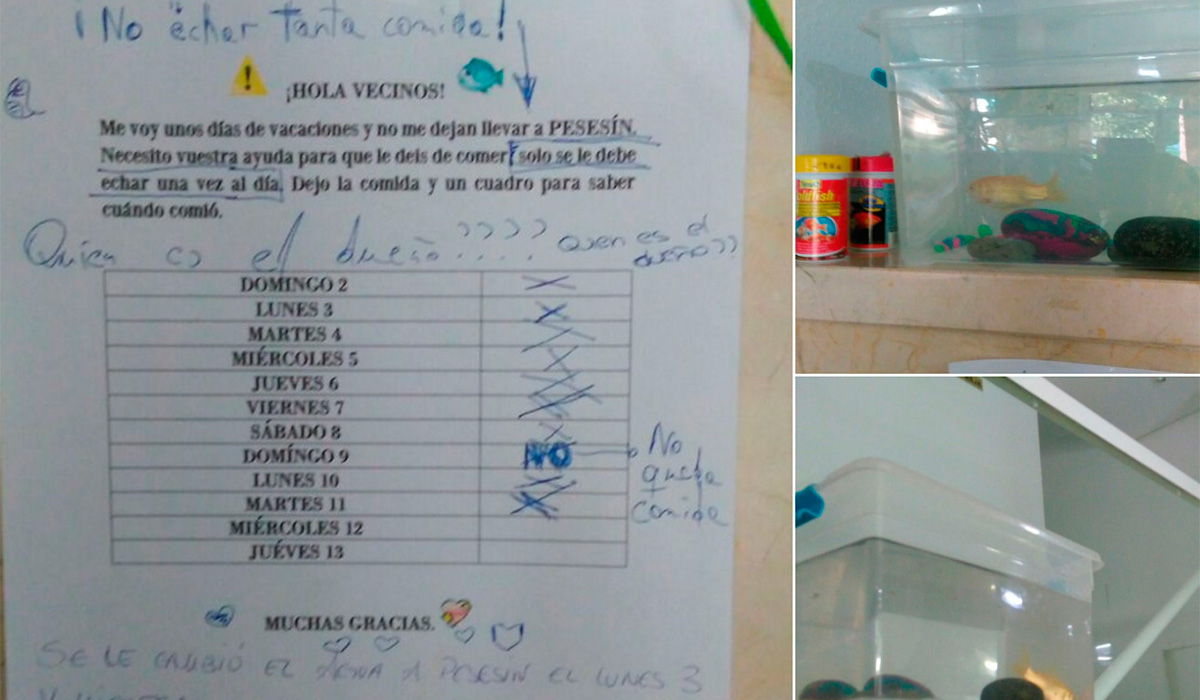 ¡No echar Tanta comida!
¡HOLA VECINOS!
Me voy unos días de vacaciones y no me dejan llevar a PESESÍN.
Necesito vuestra ayuda para que le deis de comer, solo se le debe
echar una vez al día. Dejo la comida y un cuadro para saber
cuándo comió.
Quien es el dueño????
Quien es el
dueño??
DOMINGO 2
LUNES 3
MARTES 4
MIÉRCOLES 5
JUEVES 6
VIERNES 7
SÁBADO 8
DOMÍNGO 9 NO
No
queda
comida
LUNES 10
MARTES 11
MIÉRCOLES 12
JUÉVES 13
MUCHAS GRACIAS.
SE LE CAMBIÓ EL AGUA A PESESIN EL LUNES 3